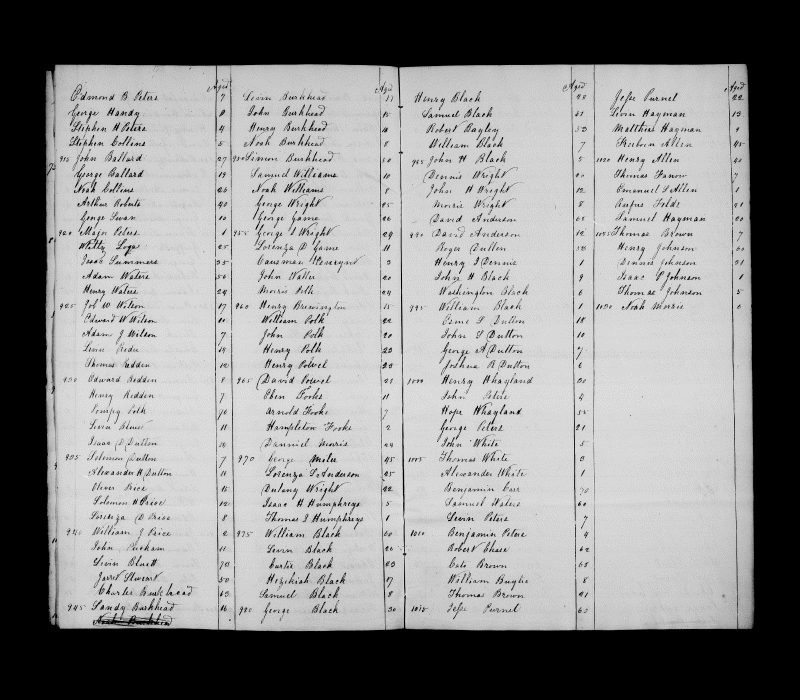 Aged
Edmond B Peters 7
George Handy 8
Stephen H Peters 4
Stephen Collins 5
915 John Ballard 27
George Ballard 19
Noah Collins 26
Arthur Roberts 40
George Swan 10
920 Major Peters 1
Whitty 25
Isaac Summers 35
Adam Waters 50
Henry Waters 24
925 Job W Wilson 17
Edward W Wilson 10
Adam J Wilson 7
Levin 14
Thomas Redden 12
930 Edward Redden 8
Henry Redden 7
Pompey Polk 70
Levin 11
Isaac D Dutton 10
935 Solomon Dutton 7
Alexander H Dutton 11
Oliver Price 15
Solomon H Price 12
Lorenza D Price 8
940 William J Price 2
John 11
Levin Bluett 70
Jarret Stewart 50
Charles Burkhead 63
945 Sandy Burkhead 16
Noah Burkhead
Aged
Levin Burkhead 17
John Burkhead 15
Henry Burkhead 10
Noah Burkhead 8
950 Simon Burkhead 50
Samuel Williams 11
Noah Williams 8
George Wright 25
George Game 22
955 George S Wright 29
Lorenza D Game 11
3
John Waller 20
Morris Polk 24
960 Henry Brewington 15
William Polk 22
John Polk 20
Henry Polk 23
Henry Powel 23
965 David Powel 21
Eben Fooks 11
Arnold Fooks 7
Hampleton Fooks 2
Danniel Morris 44
970 George Miles 45
Lorenza D Anderson 25
Dulany Wright 22
Isaac H Humphreys 5
Thomas J Humphreys 1
975 William Black 50
Levin Black 20
Curtis Black 23
Hezekiah Black 17
Samuel Black 8
980 George Black 30
Aged
Henry Black 28
Samuel Black 51
Robert Bayley 33
William Black 7
985 John H Black 5
Dennis Wright 20
John H Wright 12
Morris Wright 8
David Anderson 65
990 David Anderson 12
Roger Dutton 52
Henry J Dennis 1
John H Black 9
Washington Black 6
995 William Black 1
Esme D Dutton 18
John S Dutton 10
George A Dutton 7
Joshua R Dutton 6
1000 Henry Whayland 30
John Peters 4
Hope Whayland 55
George Peters 21
John White 5
1005 Thomas White 3
Alexander White 1
Benjamin Carr 70
Samuel Waters 60
Levin Peters 7
1010 Benjamin Peters 4
Robert Chase 62
Cato Brown 68
William 8
Thomas Brown 21
1015 Jesse Purnel 63
Aged
Jesse Purnel 22
Levin Hayman 13
Matthias Hayman 9
Steeben Allen 45
1020 Henry Allen 40
Thomas 7
Emanuel L Allen 1
Rufus Folds 21
Samuel Hayman 20
1025 Thomas Brown 7
Henry Johnson 60
Dennis Johnson 31
Isaac P Johnson 1
Thomas Johnson 5
1030 Noah Morris 6